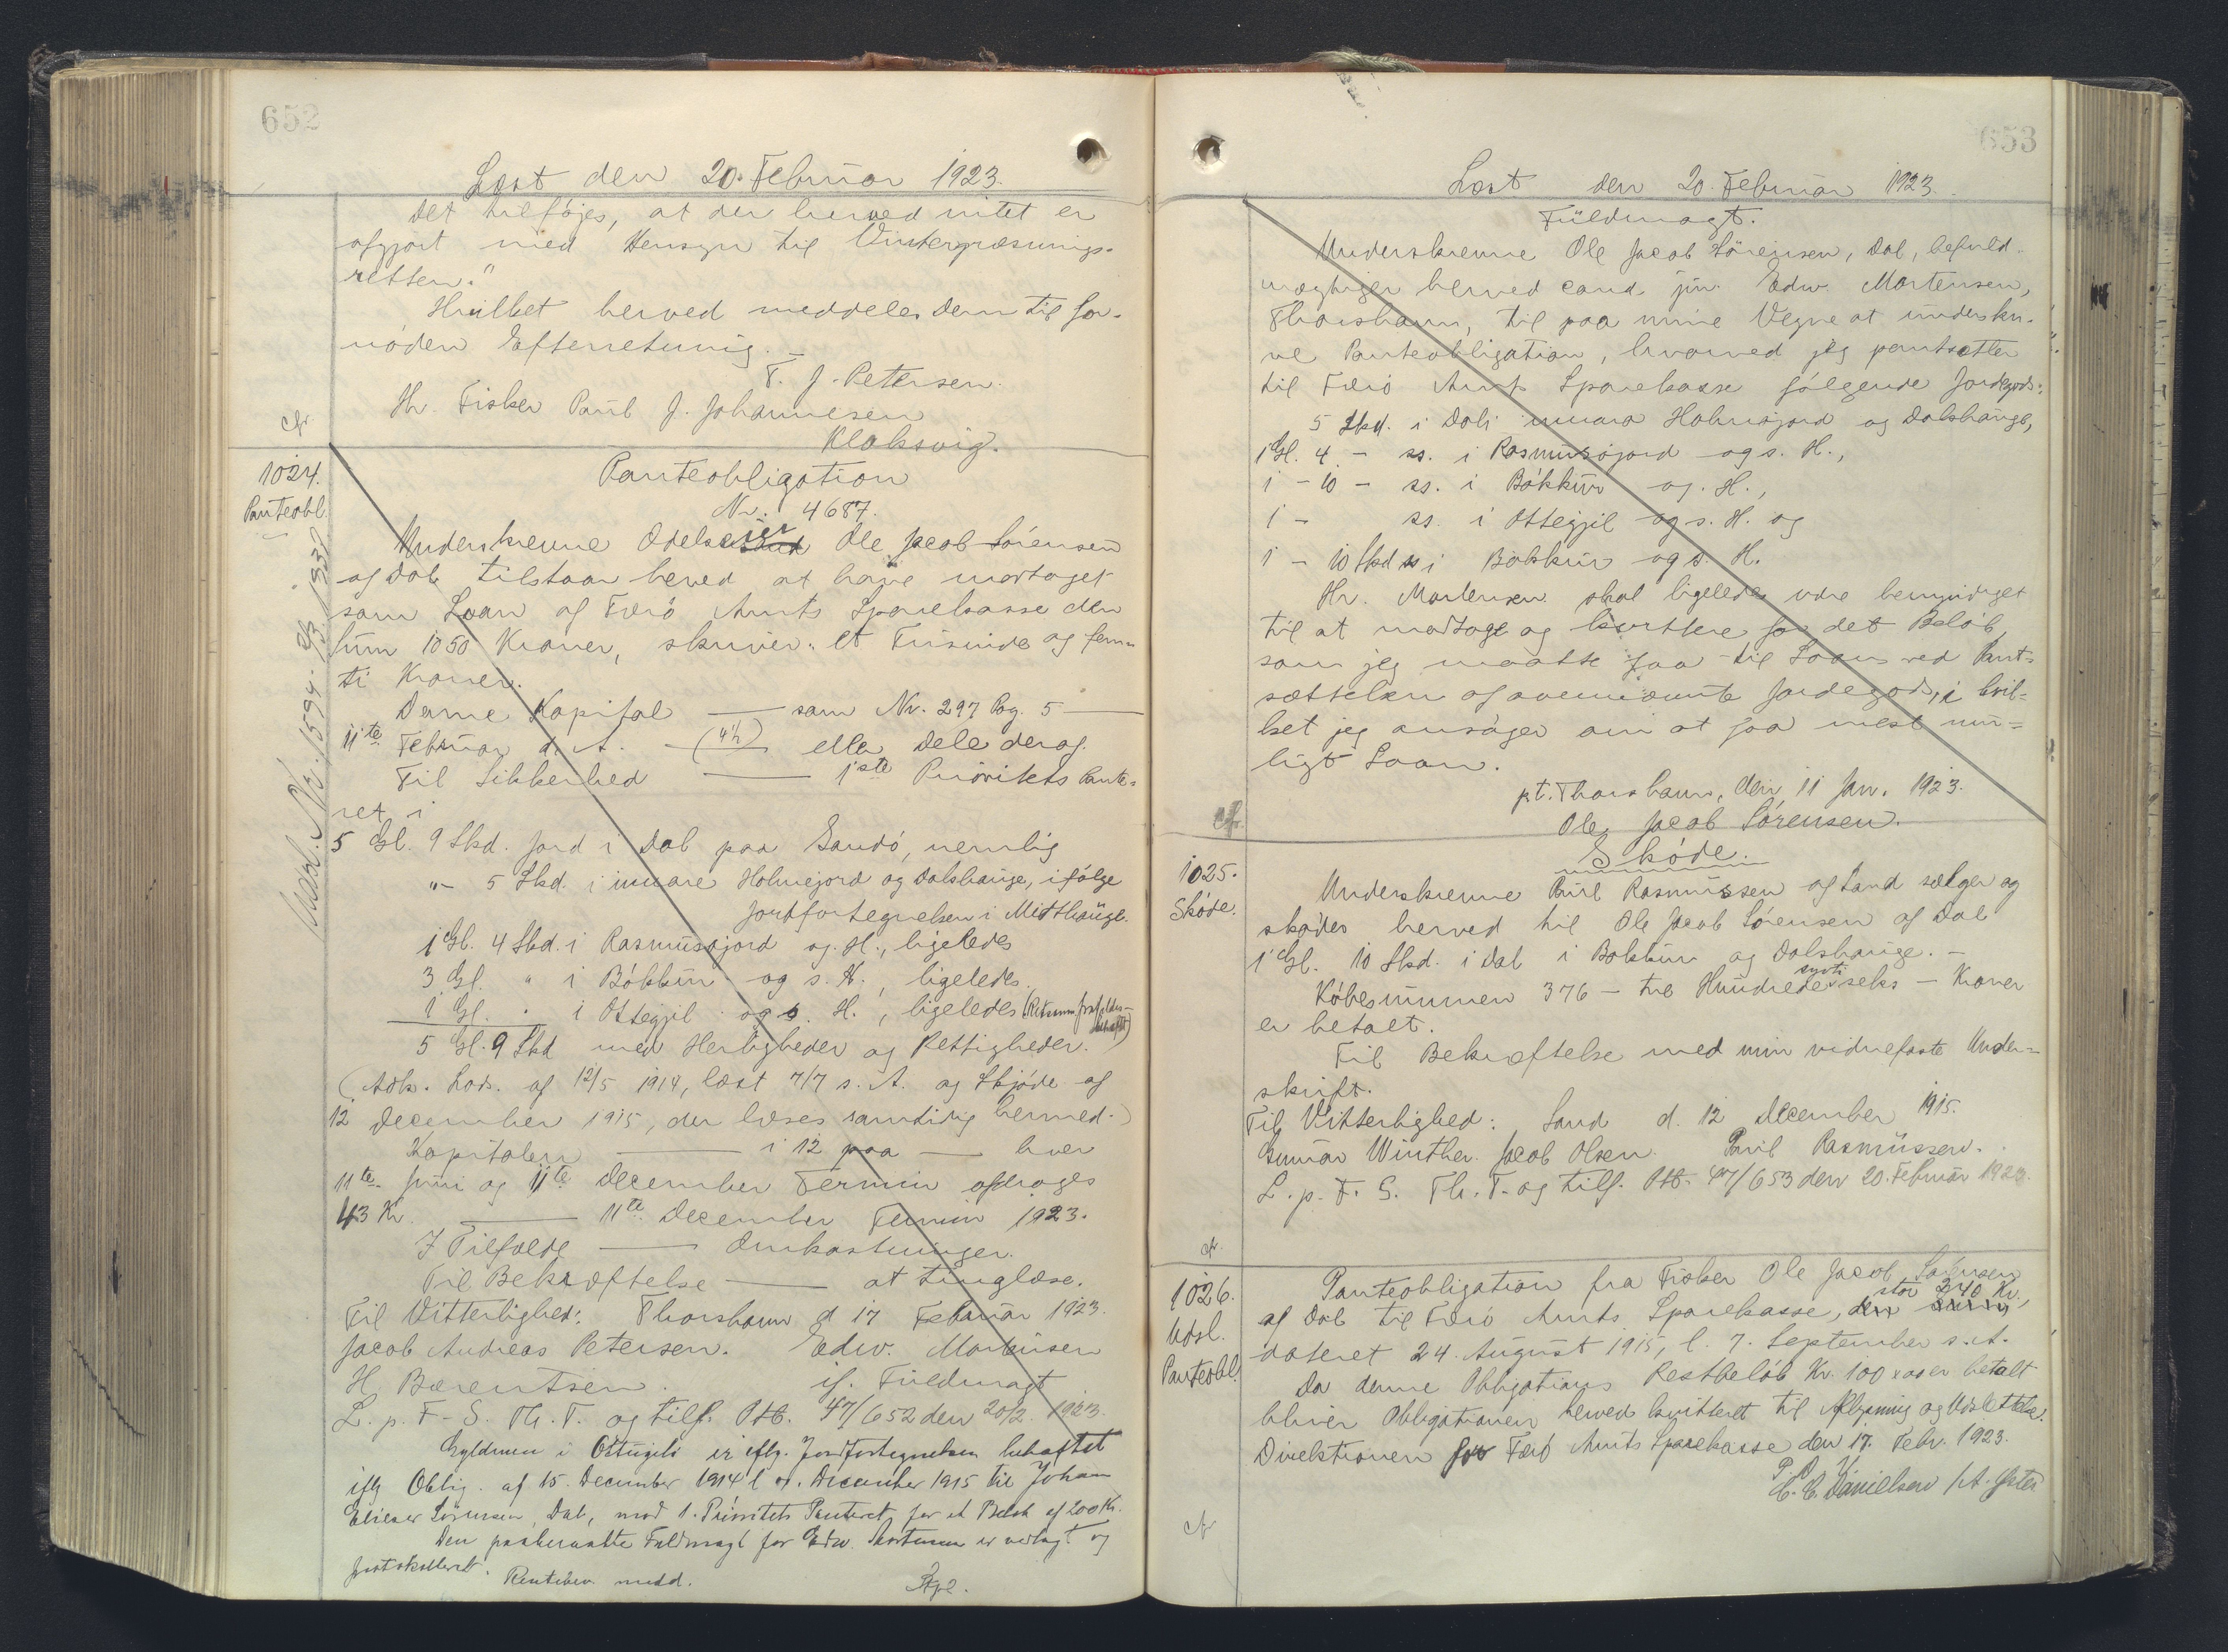 652
Læst den 20. Februar 1923.
Det tilføjes, at der herved intet er
afgjort med Hensyn til Vintergræsnings-
retten."
Hvilket herved meddeles Dem til for-
nøden Efterretning.
T. J. Petersen.
Hr. Fisker Paul J. Johannesen
Klaksvig.
1024.
Panteobl.
Panteobligation
Nr. 4687.
Underskrevne Odels Ole Jacob Sörensen
af Dal tilstaar herved at have modtaget
som Laan af Færö Amts Sparekasse den
Sum 1050 Kroner, skriver: et Tusinde og fem-
ti Kroner.
Denne Kapital — som Nr. 297 Pag. 5 —
11te Februar d. A. — (4½) eller Dele deraf.
Til Sikkerhed — 1ste Prioritets Pante-
ret i
5 Gl. 9 Skd. Jord i Dal paa Sandö, nemlig
"- 5 Skd. i innare Holmejord og Dalshauge, ifölge
Jordfortegnelsen i Mitthauge.
1 Gl. 4 Skd. i Rasmusjord og. H., ligeledes
3 Gl. " i Bökkun og s. H., ligeledes.
1 Gl. " i Ottegjil og s. H., ligeledes
5 Gl. 9 Skd med Herligheder og Rettigheder.
(Adk. Dok. af 12/5 1914, læst 7/7 s. A. og Skjöde af
12 December 1915, der læses samtidig hermed.)
Kapitalen — i 12 paa — hver
11te Juni og 11te December Termin afdrages
43 Kr. — 11te December Termin 1923.
I Tilfælde — Omkostninger.
Til Bekræftelse — at tinglæse.
Til Vitterlighed: Thorshavn d 17 Februar 1923.
Jacob Andreas Petersen. Edw. Mortensen
H. Bærentsen. if. Fuldmagt
L. p. F. S. Th. T. og tilf. Ptb. 47/652 den 20/2 1923.
Gyldenen i Ottegjil er iflg. Jordfortegnelsen behæftet
iflg Oblig. af 15. December 1914 l. December 1915 til Johan
Elieser Sörensen, Dal, med 1. Prioritets Panteret for et Beløb af 200 Kr.
Den paaberaabte Fuldmagt for Edw. Mortensen er vedlagt og
protokolleret.
653
Læst den 20. Februar 1923.
Fuldmagt.
Underskrevne Ole Jacob Sörensen, Dal, befuld-
mægtiger herved cand. jur. Edw. Mortensen,
Thorshavn, til paa mine Vegne at underskri-
ve Panteobligation, hvorved jeg pantsætter
til Færö Amts Sparekasse følgende Jordegods:
5 Skd. i Dali innara Holmojord og Dalshauge,
1 Gl. 4 - ss. i Rasmusojord og s. H.,
1 - 10 - ss. i Bökkur og. H.,
1 - ss. i Ottegjil og s. H. og
1 - 10 Skd ss i Bakkur og s. H.
Hr. Mortensen skal ligeledes være bemyndiget
til at modtage og kvittere for det Beløb,
som jeg maatte faa til Laans ved Pant-
sættelsen af ovennævnte Jordegods, i hvil-
ket jeg ansøger om at faa mest mu-
ligt Laan.
pt. Thorshavn, den 11 Jan. 1923.
Ole Jacob Sörensen.
1025.
Skøde.
Skøde.
Underskrevne Paul Rasmussen af Sand sælger og
skøder herved til Ole Jacob Sörensen af Dal
1 Gl. 10 Skd. i Dal i Bakkun og Dalshauge. -
Købesummen 376 - tre Hundrede syvti seks - Kroner
er betalt.
Til Bekræftelse med min vidnefaste Under-
skrift.
Til Vitterlighed: Sand d. 12 December 1915.
Gunnar Winther. Jacob Olsen. Paul Rasmussen.
L. p. F. S. Th. T. og tilf. Ptb. 47/653 den 20. Februar 1923.
1026.
Udsl.
Panteobl.
Panteobligation fra Fisker Ole Jacob Sörensen
af Dal til Færö Amts Sparekasse, stor 240 Kr.,
dateret 24. August 1915, l. 7. September s. A.
Da denne Obligations Restbeløb Kr. 100 x oo er betalt
bliver Obligationen herved kvitteret til Aflysning og Udslettelse.
Direktionen for Færö Amts Sparekasse den 17. Febr. 1923.
P. D. V.
C. C. Danielsen